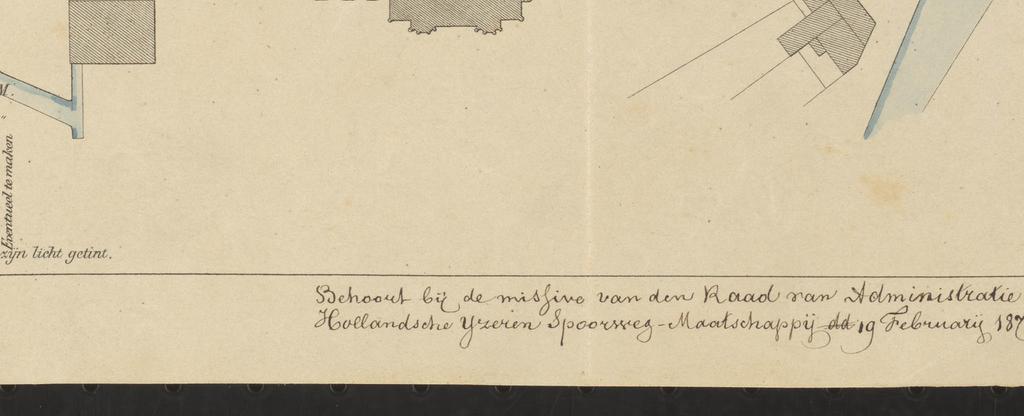 M.
"
Eventueel te maken
zijn licht getint.
Behoort bij de missive van den Raad van Administratie
Hollandsche Yzeren Spoorweg-Maatschappij dd 19 February 187